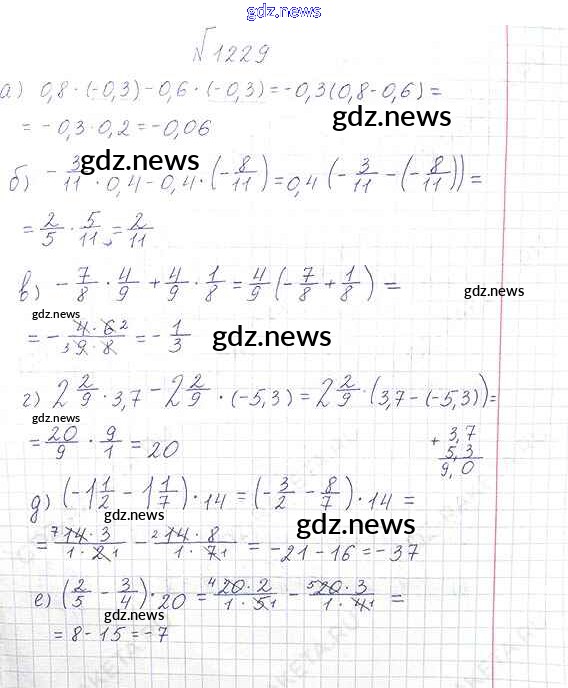 gdz.news
√1229
а) 0,8 · (-0,3) - 0,6 · (-0,3) = -0,3(0,8 - 0,6) =
gdz.news
= -0,3 · 0,2 = -0,06
gdz.news
б) -3/11 · 0,4 - 0,4 · (-8/11) = 0,4 (-3/11 - (-8/11)) =
= 2/5 · 5/11 = 2/11
в) -7/8 · 4/9 + 4/9 · 1/8 = 4/9 (-7/8 + 1/8) =
gdz.news
gdz.news
= - 4 · 6 2 / 3 9 · 8 = -1/3
gdz.news
г) 2 2/9 · 3,7 - 2 2/9 · (-5,3) = 2 2/9 · (3,7 - (-5,3)) =
gdz.news
= 20/9 · 9/1 = 20
+ 3,7
5,3
9,0
д) (-1 1/2 - 1 1/7) · 14 = (-3/2 - 8/7) · 14 =
gdz.news
gdz.news
= 7 14 · 3 / 1 · 2 1 - 2 14 · 8 / 1 · 7 1 = -21 - 16 = -37
е) (2/5 - 3/4) · 20 = 4 20 · 2 / 1 · 5 1 - 5 20 · 3 / 1 · 4 1 =
gdz.news
= 8 - 15 = -7